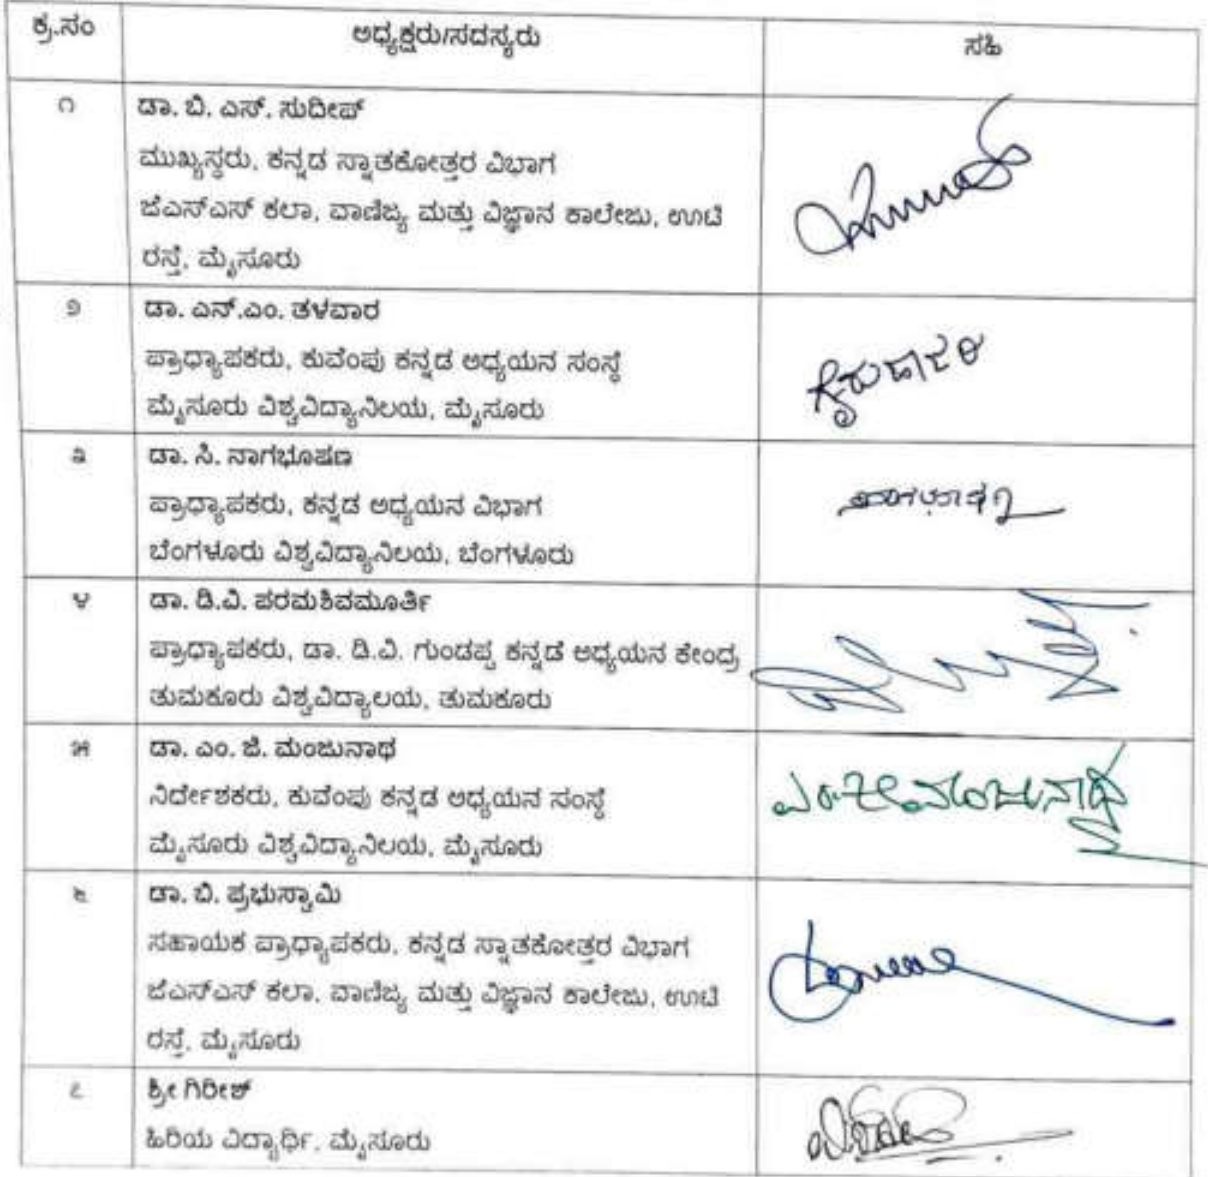 ಕ್ರ.ಸಂ ಅಧ್ಯಕ್ಷರು/ಸದಸ್ಯರು ಸಹಿ
೧ ಡಾ. ಬಿ. ಎಸ್. ಸುದೀಪ್
ಮುಖ್ಯಸ್ಥರು, ಕನ್ನಡ ಸ್ನಾತಕೋತ್ತರ ವಿಭಾಗ
ಜೆಎಸ್ಎಸ್ ಕಲಾ, ವಾಣಿಜ್ಯ ಮತ್ತು ವಿಜ್ಞಾನ ಕಾಲೇಜು, ಊಟಿ
ರಸ್ತೆ, ಮೈಸೂರು
೨ ಡಾ. ಎನ್.ಎಂ. ತಳವಾರ
ಪ್ರಾಧ್ಯಾಪಕರು, ಕುವೆಂಪು ಕನ್ನಡ ಅಧ್ಯಯನ ಸಂಸ್ಥೆ
ಮೈಸೂರು ವಿಶ್ವವಿದ್ಯಾನಿಲಯ, ಮೈಸೂರು
೩ ಡಾ. ಸಿ. ನಾಗಭೂಷಣ
ಪ್ರಾಧ್ಯಾಪಕರು, ಕನ್ನಡ ಅಧ್ಯಯನ ವಿಭಾಗ
ಬೆಂಗಳೂರು ವಿಶ್ವವಿದ್ಯಾನಿಲಯ, ಬೆಂಗಳೂರು
೪ ಡಾ. ಡಿ.ವಿ. ಪರಮಶಿವಮೂರ್ತಿ
ಪ್ರಾಧ್ಯಾಪಕರು, ಡಾ. ಡಿ.ವಿ. ಗುಂಡಪ್ಪ ಕನ್ನಡ ಅಧ್ಯಯನ ಕೇಂದ್ರ
ತುಮಕೂರು ವಿಶ್ವವಿದ್ಯಾಲಯ, ತುಮಕೂರು
೫ ಡಾ. ಎಂ. ಜಿ. ಮಂಜುನಾಥ ಎಂ.ಜಿ. ಮಂಜುನಾಥ
ನಿರ್ದೇಶಕರು, ಕುವೆಂಪು ಕನ್ನಡ ಅಧ್ಯಯನ ಸಂಸ್ಥೆ
ಮೈಸೂರು ವಿಶ್ವವಿದ್ಯಾನಿಲಯ, ಮೈಸೂರು
೬ ಡಾ. ಬಿ. ಪ್ರಭುಸ್ವಾಮಿ
ಸಹಾಯಕ ಪ್ರಾಧ್ಯಾಪಕರು, ಕನ್ನಡ ಸ್ನಾತಕೋತ್ತರ ವಿಭಾಗ
ಜೆಎಸ್ಎಸ್ ಕಲಾ, ವಾಣಿಜ್ಯ ಮತ್ತು ವಿಜ್ಞಾನ ಕಾಲೇಜು, ಊಟಿ
ರಸ್ತೆ, ಮೈಸೂರು
೭ ಶ್ರೀ ಗಿರೀಶ್
ಹಿರಿಯ ವಿದ್ಯಾರ್ಥಿ, ಮೈಸೂರು